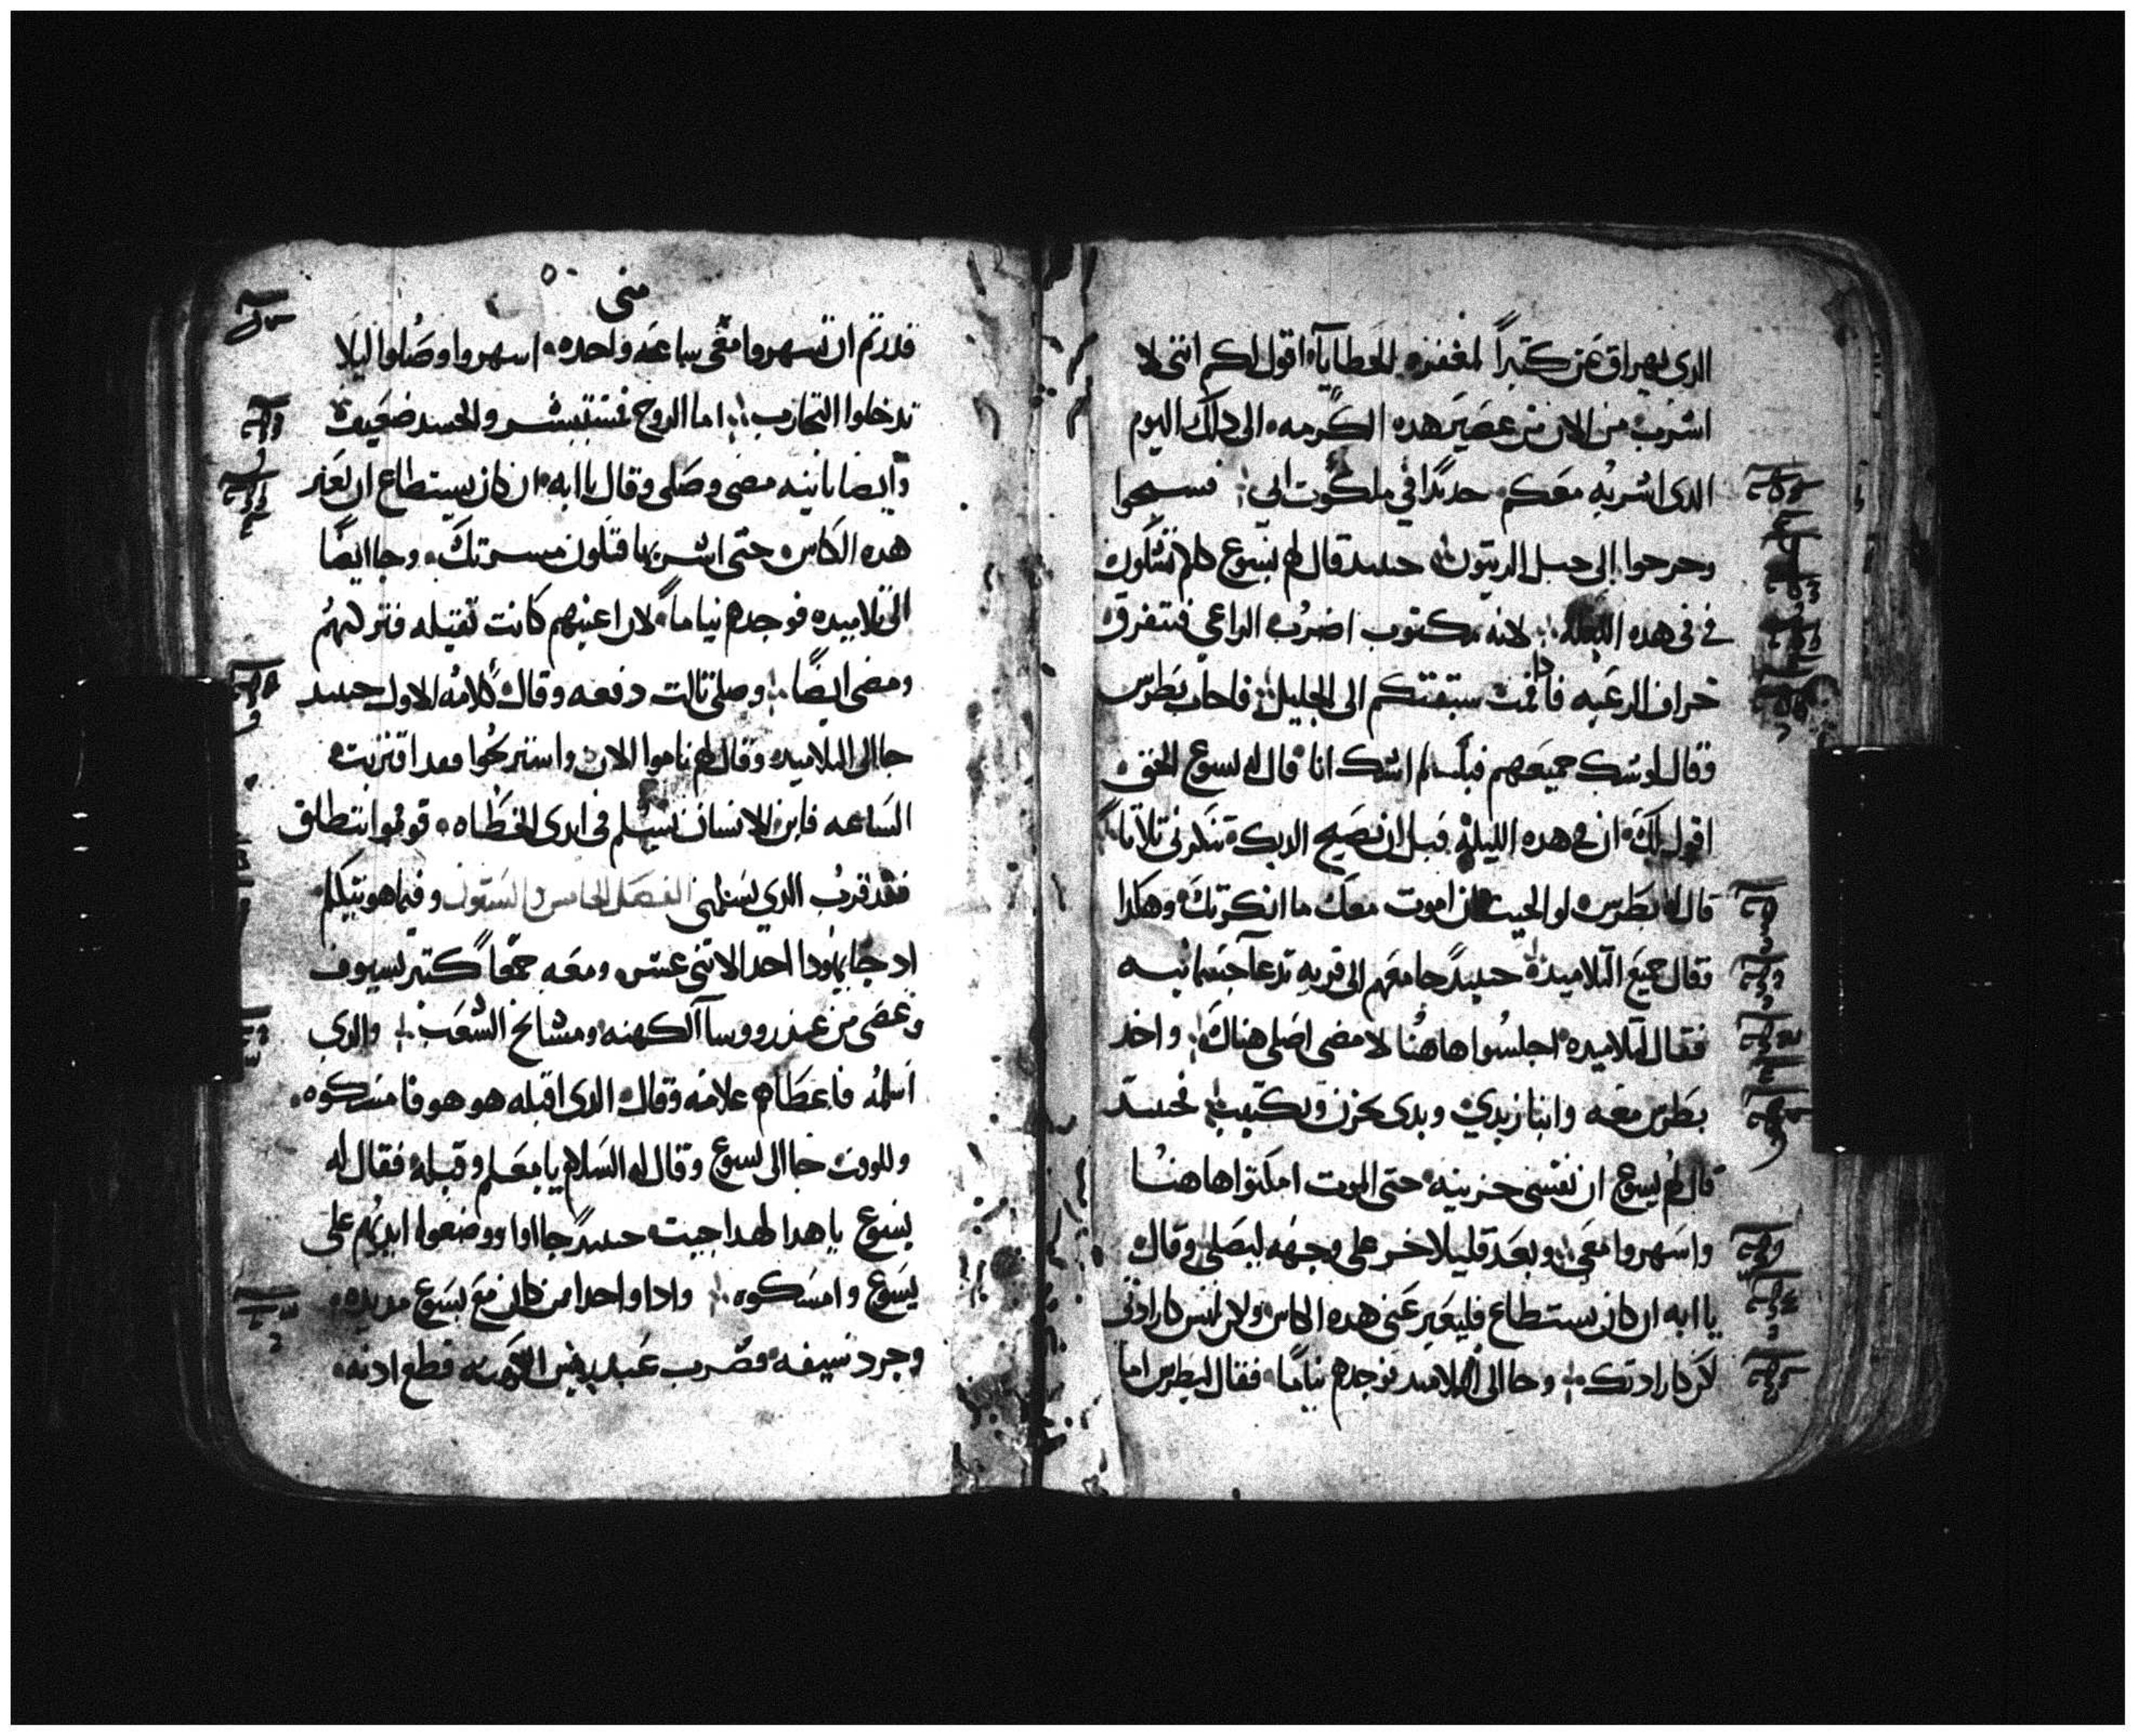 الدي يهراق عن كتيراً لمغفرة الخطايا اقول لكم انني لا
اشرب من الان من عصير هده الكرمه الى دلك اليوم
الدى اشربه معكم جديدا في ملكوت ابي فسبحوا
وخرجوا الى جبل الزيتون حينيد قال لهم يسوع كلكم تشكون
في في هده الليله لانه مكتوب اضرب الراعي فتتفرق
خراف الرعيه فادا قمت سبقتكم الى الجليل فاجاب بطرس
وقال لو شك جميعهم فيك لم اشك انا قال له يسوع الحق
اقول لك ان في هده الليله قبل ان يصيح الديك تنكرني تلاتا
قال له بطرس لو الجيت ان اموت معك ما انكرتك وهكدا
فقال جميع التلاميد حينيد جا معهم الى قريه تدعا جتسمانيه
فقال لتلاميده اجلسوا هاهنا لامضى اصلى هناك واخد
بطرس معه وابنا زبدي وبدى يحزن ويكتيب فحينيد
قال لهم يسوع ان نفسي حزينه حتى الموت امكتوا هاهنا
واسهروا معي وبعد قليلا خر على وجهه ليصلي وقال
يا ابه ان كان يستطاع فليعبر عني هده الكاس ولكن ليس كارادتي
لكن كارادتك وجا الى التلاميد فوجدهم نياما فقال لبطرس اما
متى
قدرتم ان تسهروا معي ساعه واحده اسهروا وصلوا ليلا
تدخلوا التجارب اما الروح فمستبشر والجسد ضعيف
وايضا تانيه مضى وصلى وقال يا ابه ان كان يستطاع ان تعبر
هده الكاس حتى اشربها فتكون مسرتك وجا ايضا
الى تلاميده فوجدهم نياما لان اعينهم كانت تقيله فتركهم
ومضى ايضا وصلى تالت دفعه وقال كلامه الاول حينيد
جا الى التلاميد وقال لهم ناموا الان واستريحوا فقد اقتربت
الساعه فابن الانسان يسلم في ايدى الخطاه قوموا ننطلق
فقد قرب الدي يسلمني الفصل الخامس والستون وفيما هو يتكلم
اد جا يهودا احد الاتنى عشر ومعه جمعا كتير بسيوف
وعصى من عند رووسا الكهنه ومشايخ الشعب والدي
اسلمه فاعطاهم علامه وقال الدى اقبله هو هو فامسكوه
وللوقت جا الى يسوع وقال له السلام يا معلم وقبله فقال له
يسوع يا هدا لهدا جيت حينيد جااوا ووضعوا ايديهم على
يسوع وامسكوه وادا واحدا من كان مع يسوع مد يده
وجرد سيفه فضرب عبد رييس الكهنه قطع ادنه